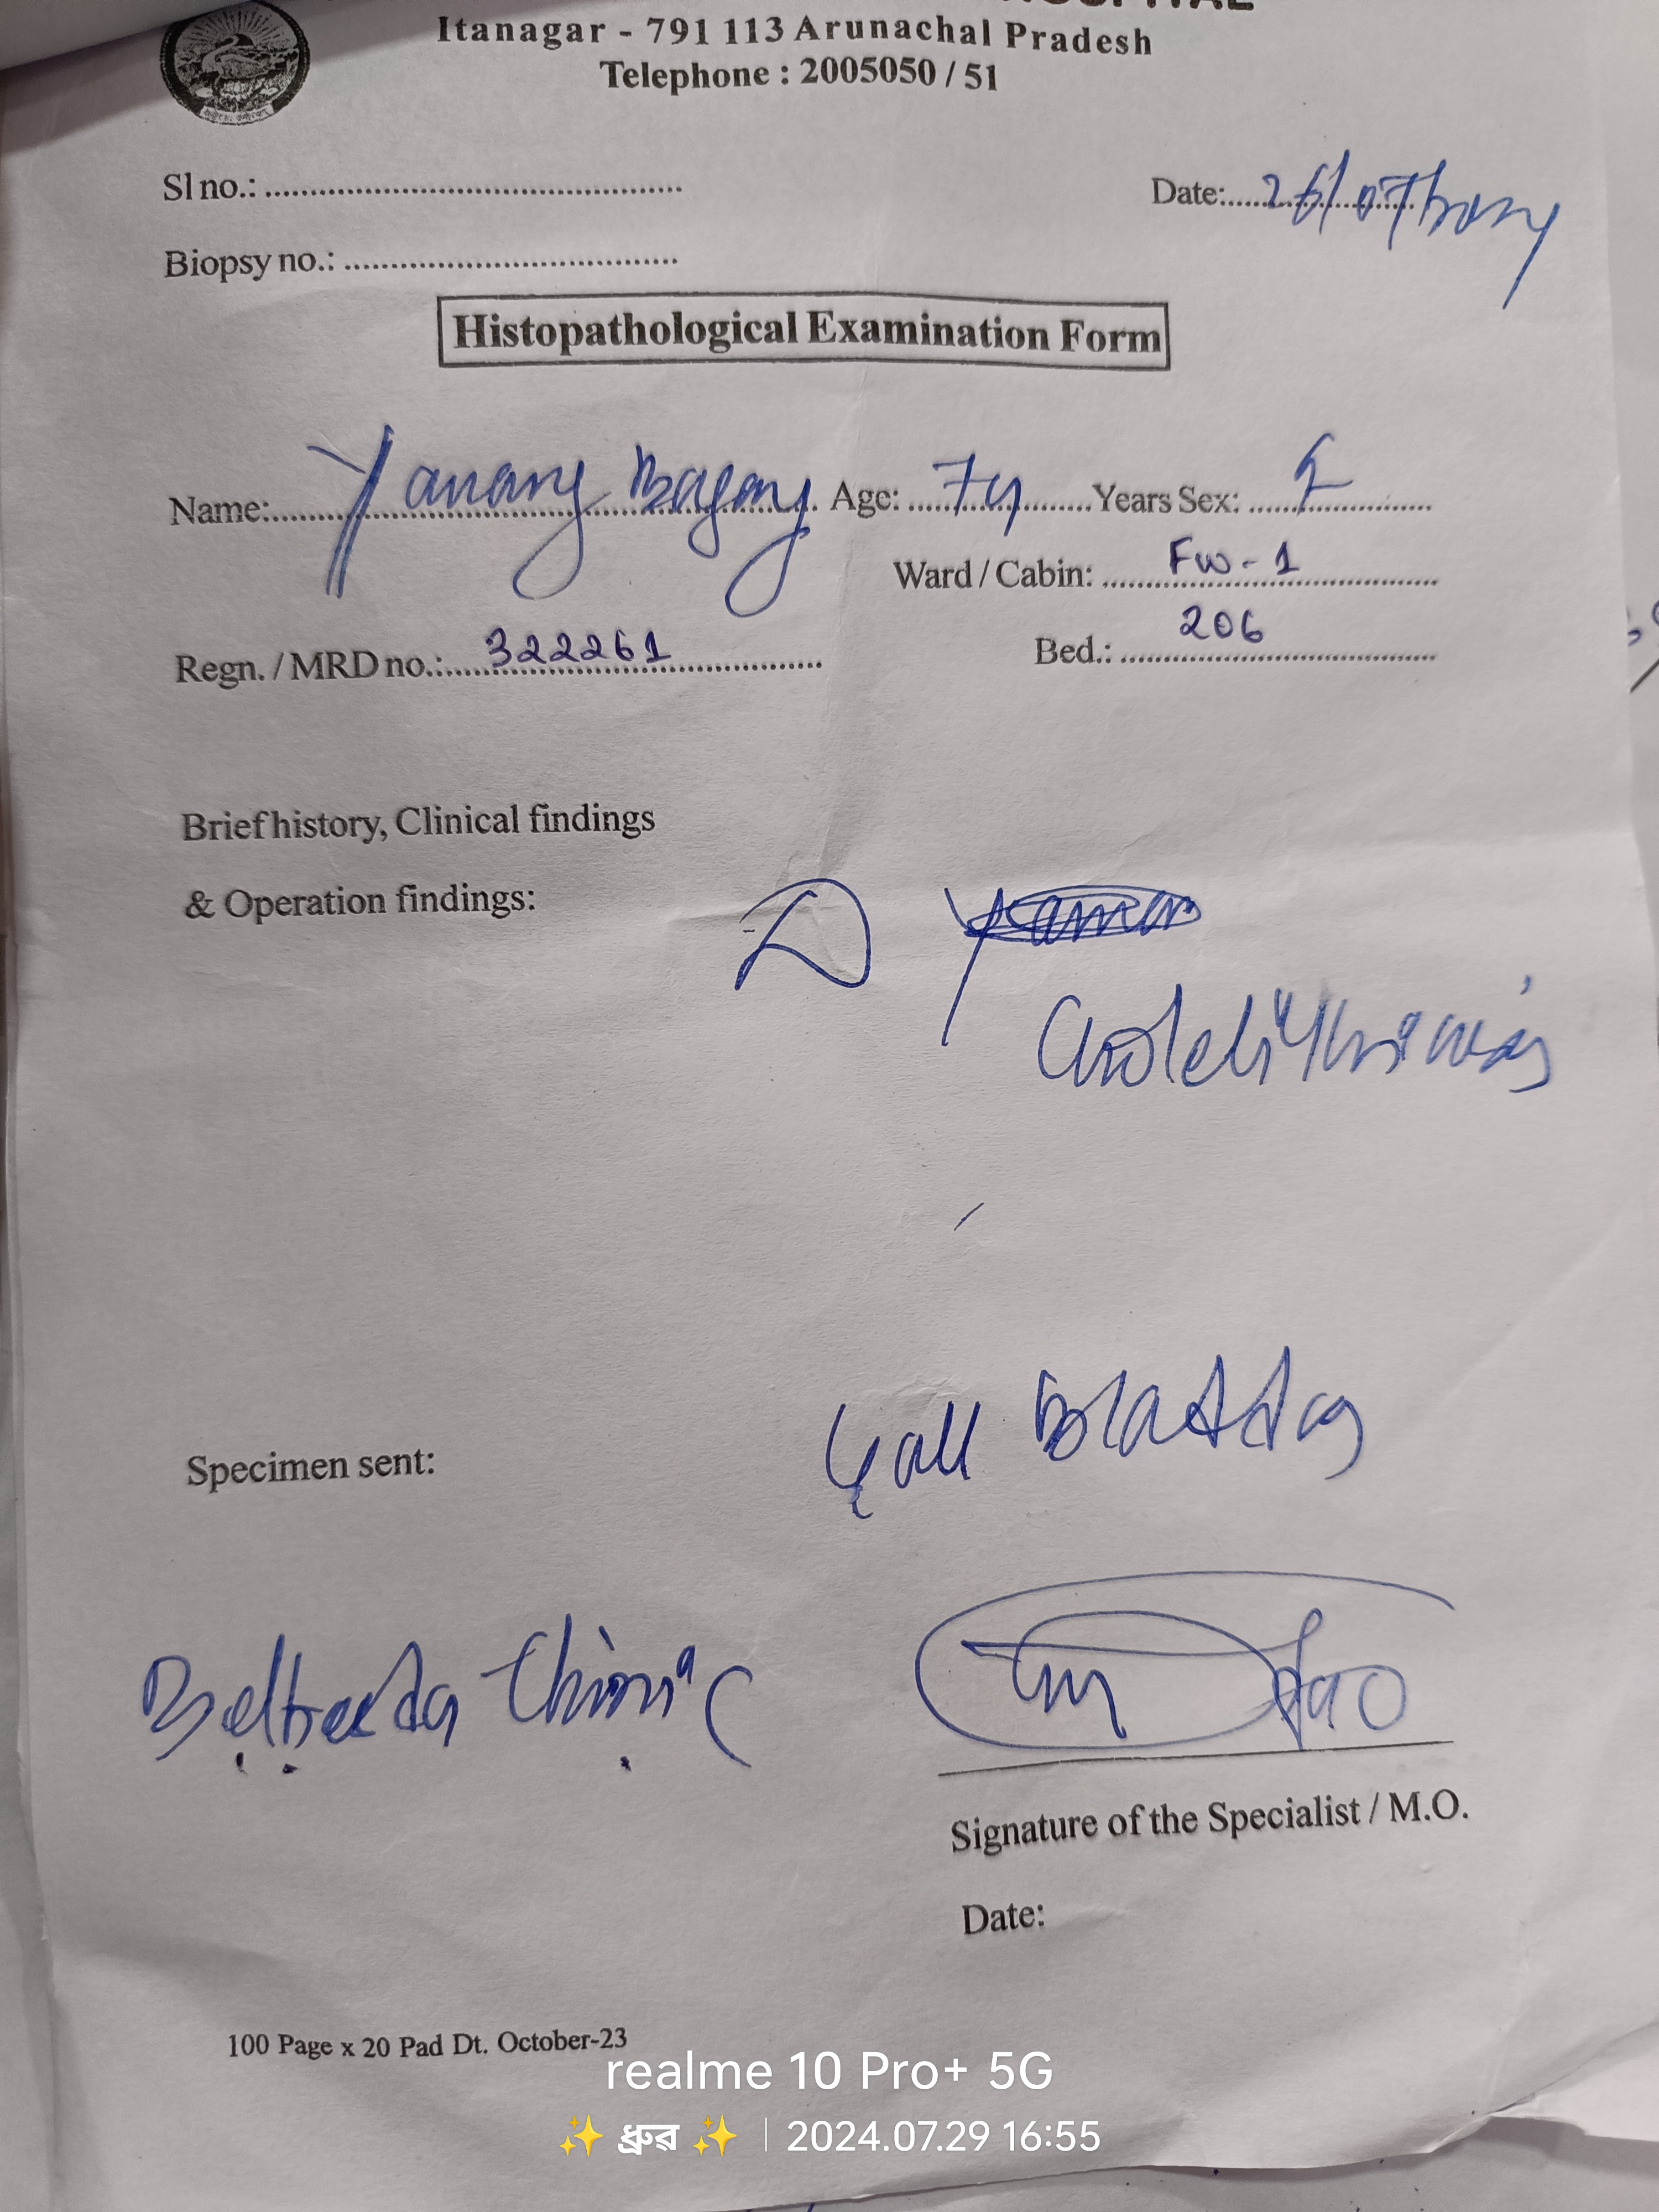 Itanagar - 791 113 Arunachal Pradesh
Telephone : 2005050 / 51
Sl no.: ........................................
Date:
Biopsy no.: ........................................
Histopathological Examination Form
Name: Yanang Bagang Age: 74 Years Sex: F
Ward / Cabin: FW - 1
Regn. / MRD no.: 322261 Bed.: 206
Brief history, Clinical findings
& Operation findings:
Specimen sent: Gall Bladder
Signature of the Specialist / M.O.
Date:
100 Page x 20 Pad Dt. October-23
realme 10 Pro+ 5G
✨ ধ্রুৱ ✨ | 2024.07.29 16:55